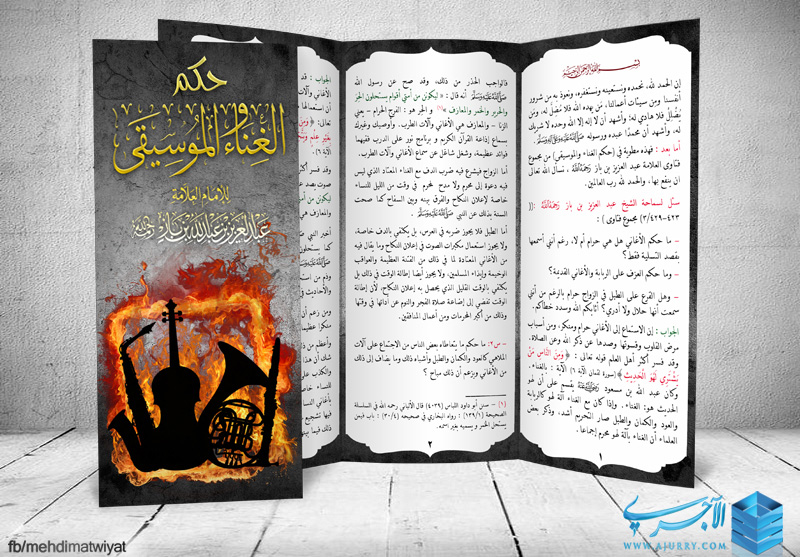 حكم
الغناء والموسيقى
للإمام العلامة
عبد العزيز بن عبد الله بن باز رحمه الله
بسم الله الرحمن الرحيم
إن الحمد لله، نحمده ونستعينه ونستغفره، ونعوذ به من شرور
أنفسنا ومن سيئات أعمالنا، من يهده الله فلا مضل له، ومن
يضلل فلا هادي له؛ وأشهد أن لا إله إلا الله وحده لا شريك
له، وأشهد أن محمدًا عبده ورسوله ﷺ.
أما بعد : فهذه مطوية في (حكم الغناء والموسيقى) من مجموع
فتاوى العلامة عبد العزيز بن باز رحمه الله ، نسأل الله تعالى
أن ينفع بها، والحمد لله رب العالمين.
سئل لسماحة الشيخ عبد العزيز بن باز رحمه الله :((
٣/٤٢٩-٤٢٣) مجموع فتاوى) :
- ما حكم الأغاني هل هي حرام أم لا، رغم أنني أسمعها
بقصد التسلية فقط؟
- وما حكم العزف على الربابة والأغاني القديمة؟
- وهل القرع على الطبل في الزواج حرام بالرغم من أنني
سمعت أنها حلال ولا أدري؟ أثابكم الله وسدد خطاكم.
الجواب : إن الاستماع إلى الأغاني حرام ومنكر، ومن أسباب
مرض القلوب وقسوتها وصدها عن ذكر الله وعن الصلاة.
وقد فسر أكثر أهل العلم قوله تعالى : ﴿ومن الناس من
يشتري لهو الحديث﴾ [سورة لقمان الآية ٦] الآية : بالغناء،
وكان عبد الله بن مسعود رضي الله عنه يقسم على أن لهو
الحديث هو: الغناء. وإذا كان مع الغناء آلة لهو كالربابة
والعود والكمان والطبل صار التحريم أشد، وذكر بعض
العلماء أن الغناء بآلة لهو محرم إجماعا.
١
فالواجب الحذر من ذلك، وقد صح عن رسول الله
ﷺ أنه قال : « ليكونن من أمتي أقوام يستحلون الحر
والحرير والخمر والمعازف »(١) و الحر هو : الفرج الحرام - يعني
الزنا - والمعازف هي الأغاني وآلات الطرب. وأوصيك وغيرك
بسماع إذاعة القرآن الكريم و برنامج نور على الدرب ففيهما
فوائد عظيمة، وشغل شاغل عن سماع الأغاني وآلات الطرب.
أما الزواج فيشرع فيه ضرب الدف مع الغناء المعتاد الذي ليس
فيه دعوة إلى محرم ولا مدح لمحرم في وقت من الليل للنساء
خاصة لإعلان النكاح والفرق بينه وبين السفاح كما صحت
السنة بذلك عن النبي ﷺ .
أما الطبل فلا يجوز ضربه في العرس، بل يكتفي بالدف خاصة،
ولا يجوز استعمال مكبرات الصوت في إعلان النكاح وما يقال فيه
من الأغاني المعتادة لما في ذلك من الفتنة العظيمة والعواقب
الوخيمة وإيذاء المسلمين، ولا يجوز أيضا إطالة الوقت في ذلك بل
يكتفي بالوقت القليل الذي يحصل به إعلان النكاح، لأن إطالة
الوقت تفضي إلى إضاعة صلاة الفجر والنوم عن أدائها في وقتها
وذلك من أكبر المحرمات ومن أعمال المنافقين.
- س٢: ما حكم ما يتعاطاه بعض الناس من الاجتماع على آلات
الملاهي كالعود والكمان والطبل وأشباه ذلك وما يضاف إلى ذلك
من الأغاني ويزعم أن ذلك مباح ؟
(١) – سنن أبو داود اللباس (٤٠٣٩) قال الألباني رحمه الله في السلسلة
الصحيحة (١/١٣٩) : رواه البخاري في صحيحه (٤/٣٠) : باب فيمن
يستحل الخمر و يسميه بغير اسمه.
٢
الجواب : قد
fb/mehdimatwiyat
الآجري
WWW.AJURRY.COM